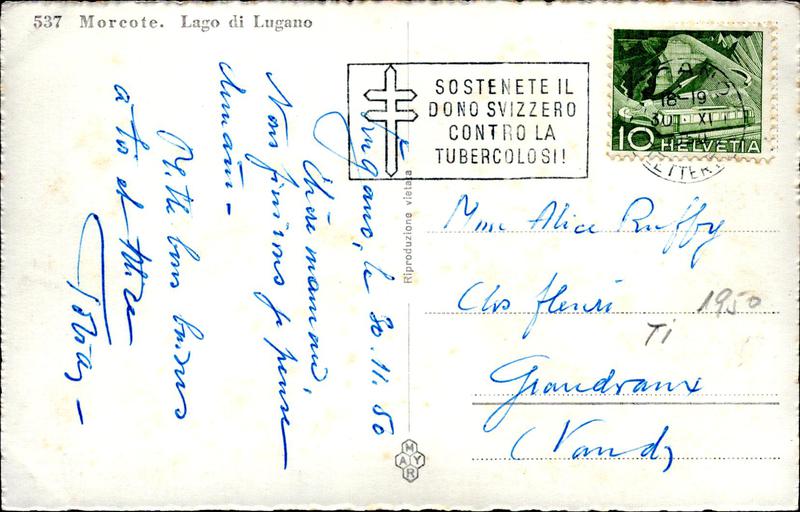 537 Morcote. Lago di Lugano
SOSTENETE IL
DONO SVIZZERO
CONTRO LA
TUBERCOLOSI!
18-19
30. XI
LETTERE
10 HELVETIA
Reproduzione vietata
Lugano, le 30.11.50
Chère maman,
Nous finissons je pense
demain -
Mille bons baisers
à toi et
Mme Alice Ruffy
Clos fleuri
Grandvaux
(Vaud)
1950
TI
MAYR